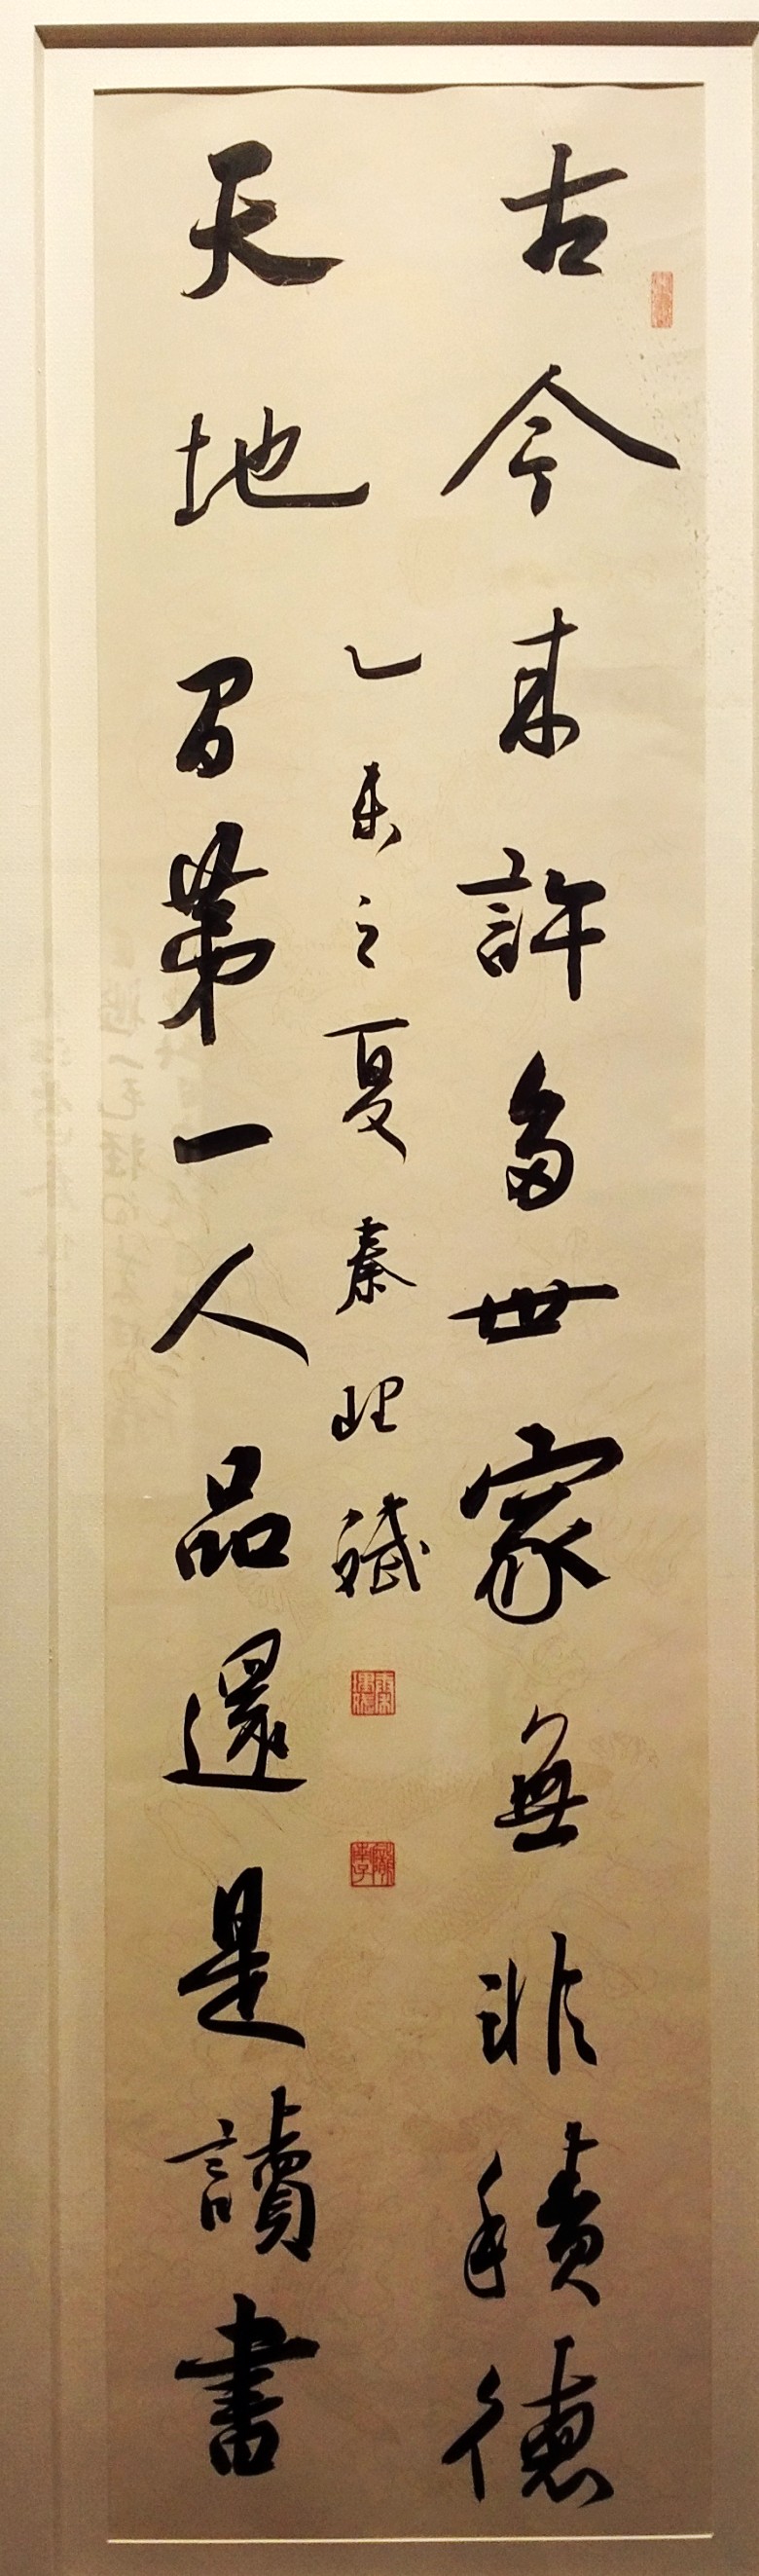 古今来許多世家無非積德
乙未之夏秦
天地間第一人品還是讀書